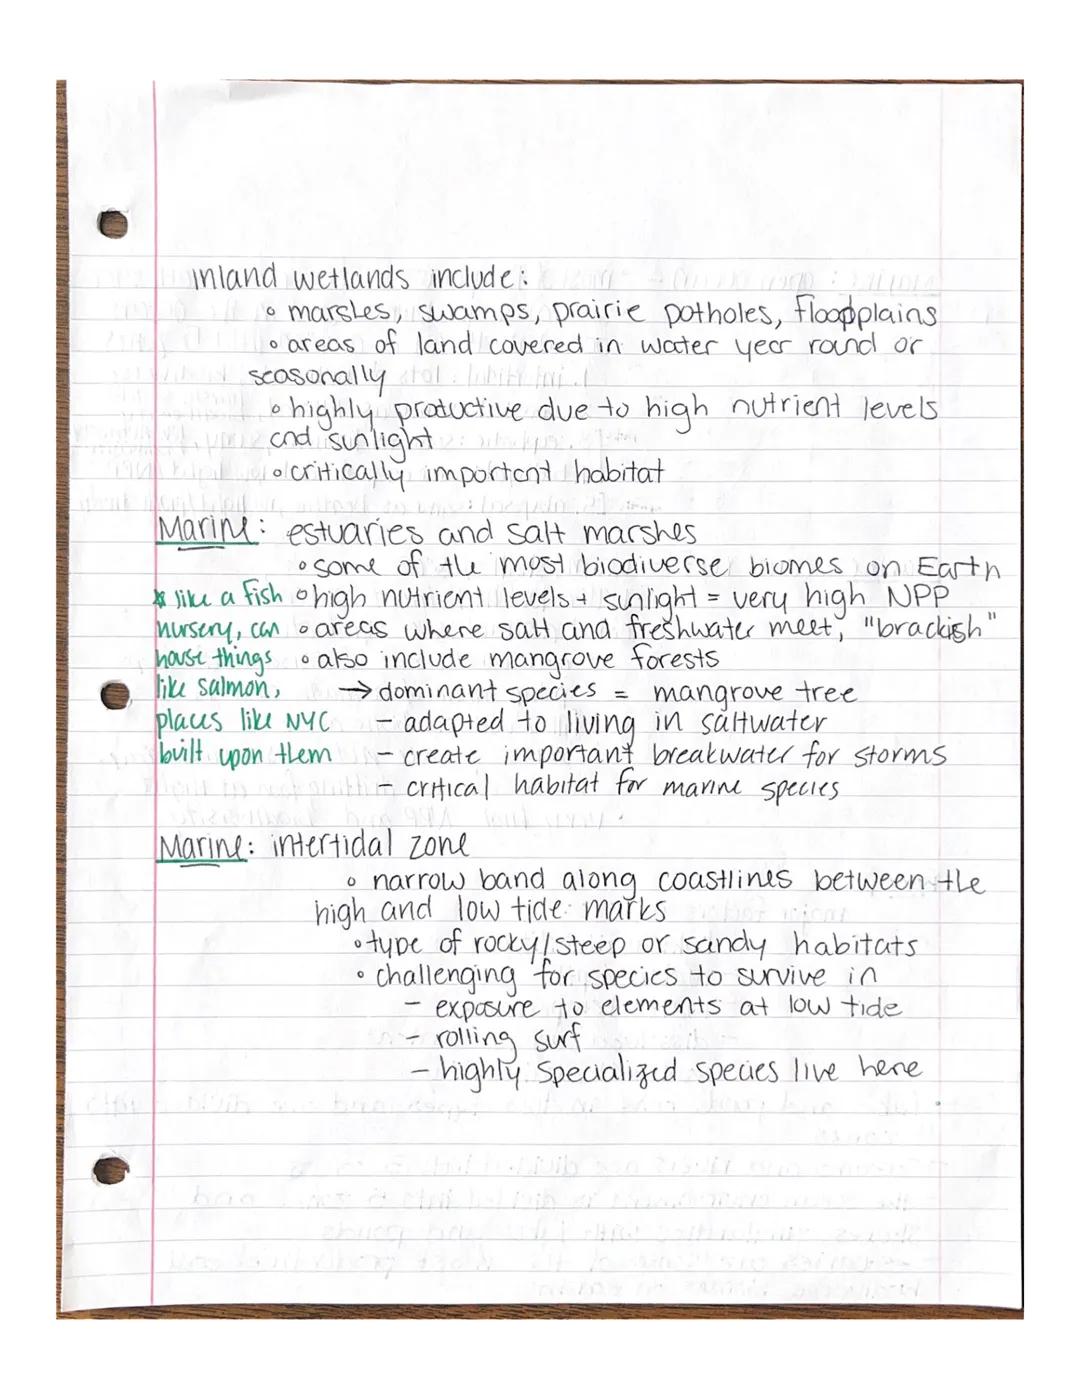 inland wetlands include:
◦ marshes, swamps, prairie potholes, floodplains
◦ areas of land covered in water year round or
seasonally
◦ highly protuctive due to high nutrient levels
and sunlight
◦ critically important habitat
Marine: estuaries and salt marshes
◦ some of the most biodiverse biomes on Earth
* like a fish ◦ high nutrient levels + sunlight = very high NPP
nursery, can ◦ areas where salt and freshwater meet, "brackish"
house things ◦ also include mangrove forests
like salmon, → dominant species = mangrove tree
places like NYC - adapted to living in saltwater
built upon them - create important breakwater for storms
- critical habitat for marine species
Marine: intertidal zone
◦ narrow band along coastlines between the
high and low tide marks
◦ type of rocky/steep or sandy habitats
◦ challenging for species to survive in
- exposure to elements at low tide
- rolling surf
- highly specialized species live here